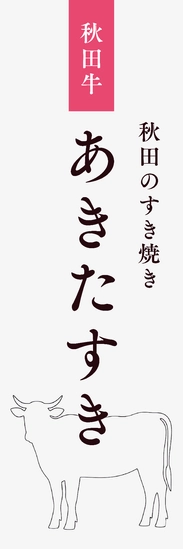 秋田牛
秋田のすき焼き
あきたすき